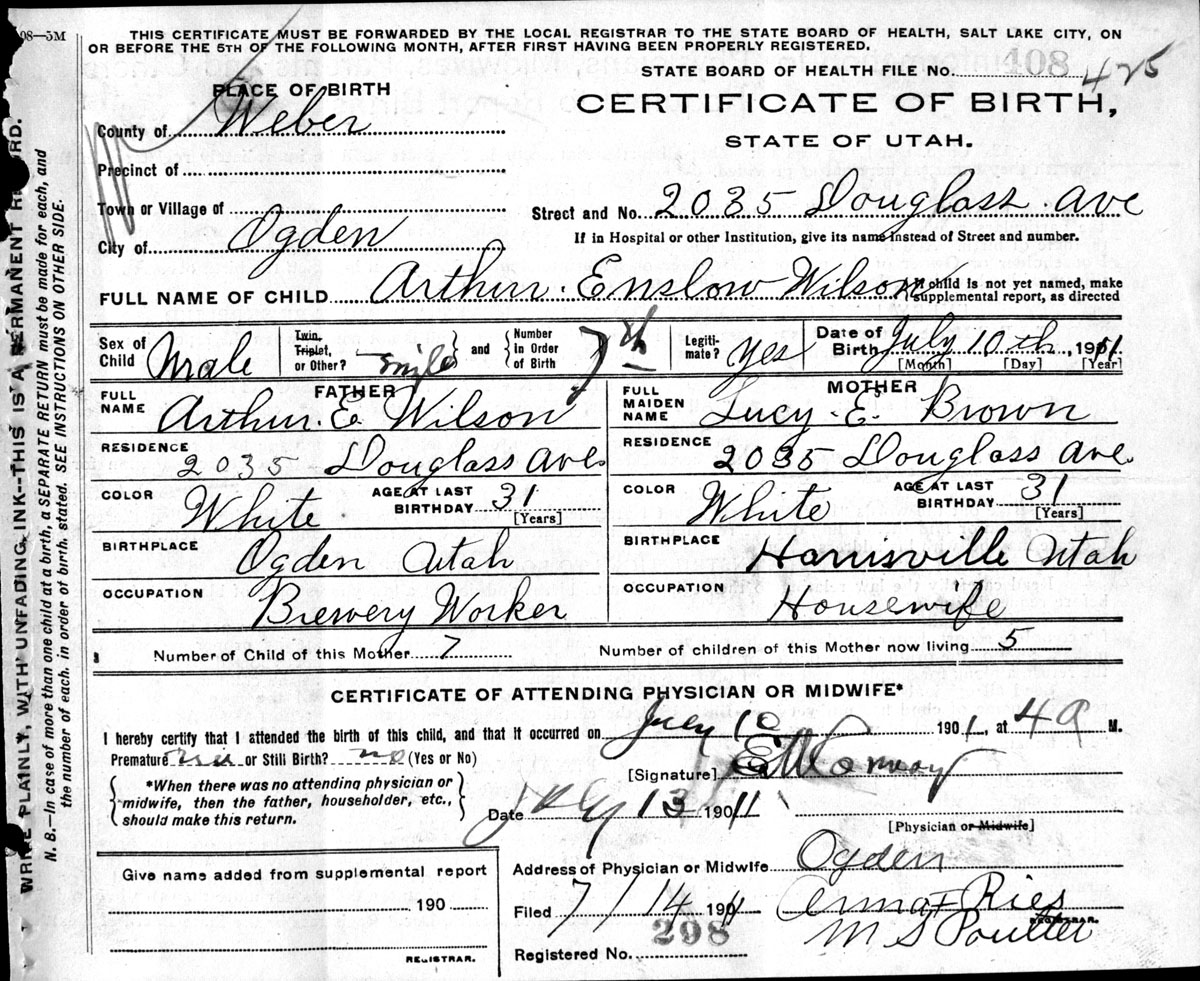 08—5M
THIS CERTIFICATE MUST BE FORWARDED BY THE LOCAL REGISTRAR TO THE STATE BOARD OF HEALTH, SALT LAKE CITY, ON
OR BEFORE THE 5TH OF THE FOLLOWING MONTH, AFTER FIRST HAVING BEEN PROPERLY REGISTERED.
STATE BOARD OF HEALTH FILE No. 408 425
PLACE OF BIRTH
CERTIFICATE OF BIRTH,
STATE OF UTAH.
County of Weber
Precinct of
Town or Village of
Street and No. 2035 Douglass Ave
City of Ogden
If in Hospital or other Institution, give its name instead of Street and number.
FULL NAME OF CHILD Arthur Enslow Wilson
If child is not yet named, make
supplemental report, as directed
Sex of Child Male
Twin, Triplet, or Other? single
and
Number in Order of Birth 7th
Legiti-mate? Yes
Date of Birth July 10th, 1911
[Month] [Day] [Year]
FATHER
FULL NAME Arthur E. Wilson
MOTHER
FULL MAIDEN NAME Lucy E. Brown
RESIDENCE 2035 Douglass Ave
RESIDENCE 2035 Douglass Ave
COLOR White
AGE AT LAST BIRTHDAY 31
[Years]
COLOR White
AGE AT LAST BIRTHDAY 31
[Years]
BIRTHPLACE Ogden Utah
BIRTHPLACE Harrisville Utah
OCCUPATION Brewery Worker
OCCUPATION Housewife
Number of Child of this Mother 7
Number of children of this Mother now living 5
CERTIFICATE OF ATTENDING PHYSICIAN OR MIDWIFE*
I hereby certify that I attended the birth of this child, and that it occurred on July 10 1901, at 4 a M.
Premature or Still Birth? no (Yes or No)
[Signature]
*When there was no attending physician or
midwife, then the father, householder, etc.,
should make this return.
Date July 13 1911
[Physician or Midwife]
Address of Physician or Midwife Ogden
Give name added from supplemental report
190
REGISTRAR.
Filed 7/14 1911
Anna F Ries
REGISTRAR.
M S Poulter
298
Registered No.
WRITE PLAINLY, WITH UNFADING INK--THIS IS A PERMANENT RECORD.
N. B.—In case of more than one child at a birth, a SEPARATE RETURN must be made for each, and
the number of each, in order of birth, stated. SEE INSTRUCTIONS ON OTHER SIDE.